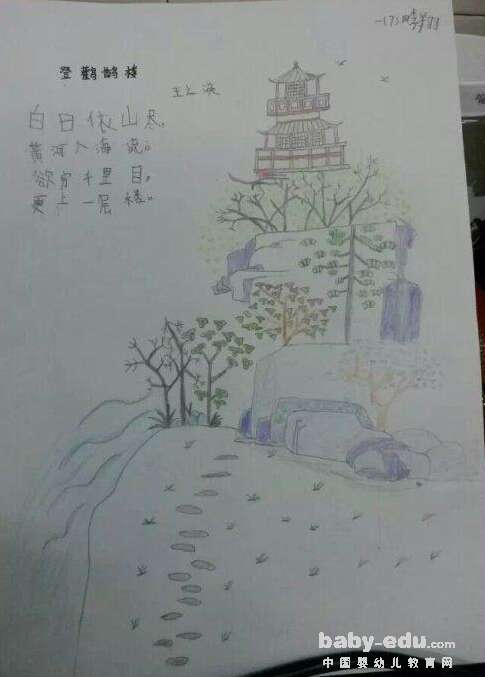 一(7)
登鹳鹊楼
王之涣
白日依山尽，
黄河入海流。
欲穷千里目，
更上一层楼。
baby-edu.com
中国婴幼儿教育网